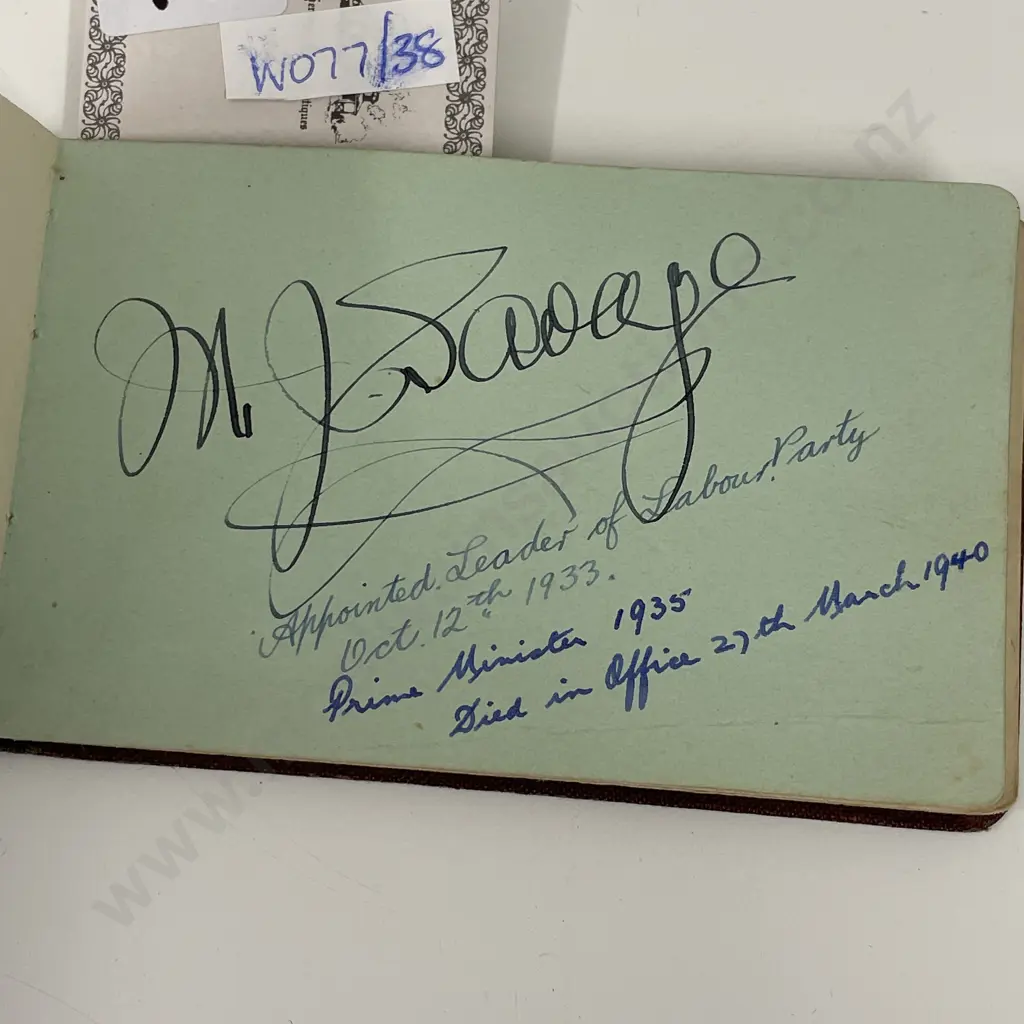 W077/38
tiques
M. J. Savage
Appointed Leader of Labour Party
Oct. 12th 1933.
Prime Minister 1935
Died in Office 27th March 1940